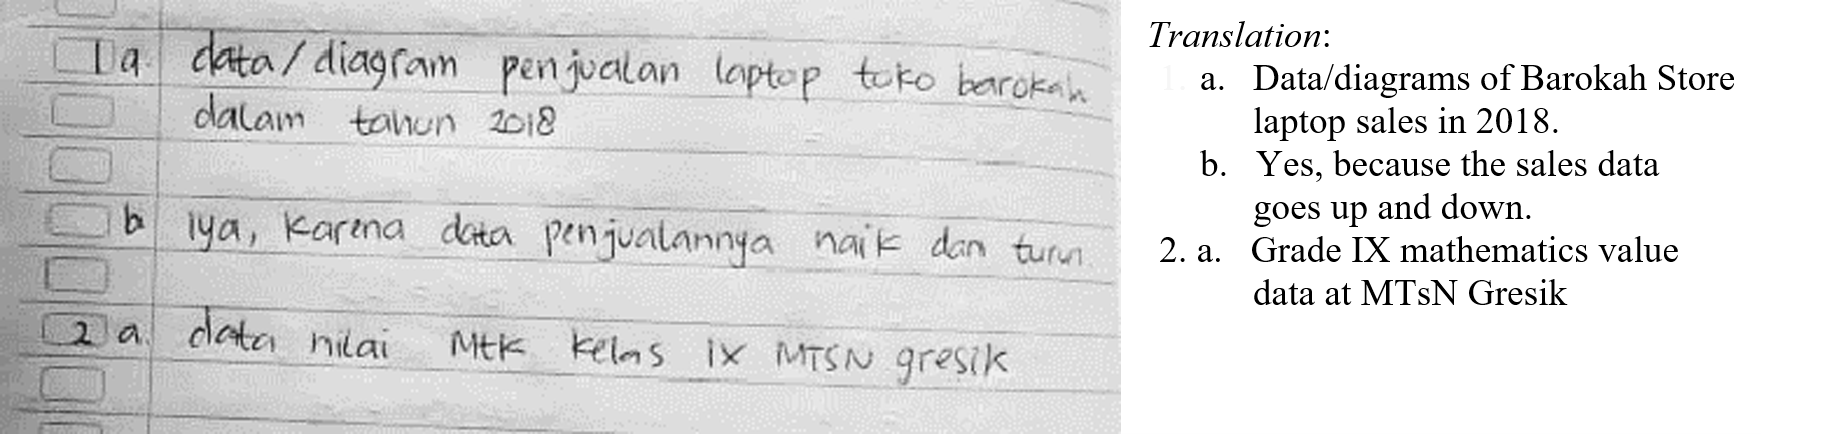 1 a. data/diagram penjualan laptop toko barokah
dalam tahun 2018
b iya, karena data penjualannya naik dan turun
2 a. data nilai Mtk kelas ix MTSN gresik
Translation:
1. a. Data/diagrams of Barokah Store
laptop sales in 2018.
b. Yes, because the sales data
goes up and down.
2. a. Grade IX mathematics value
data at MTsN Gresik